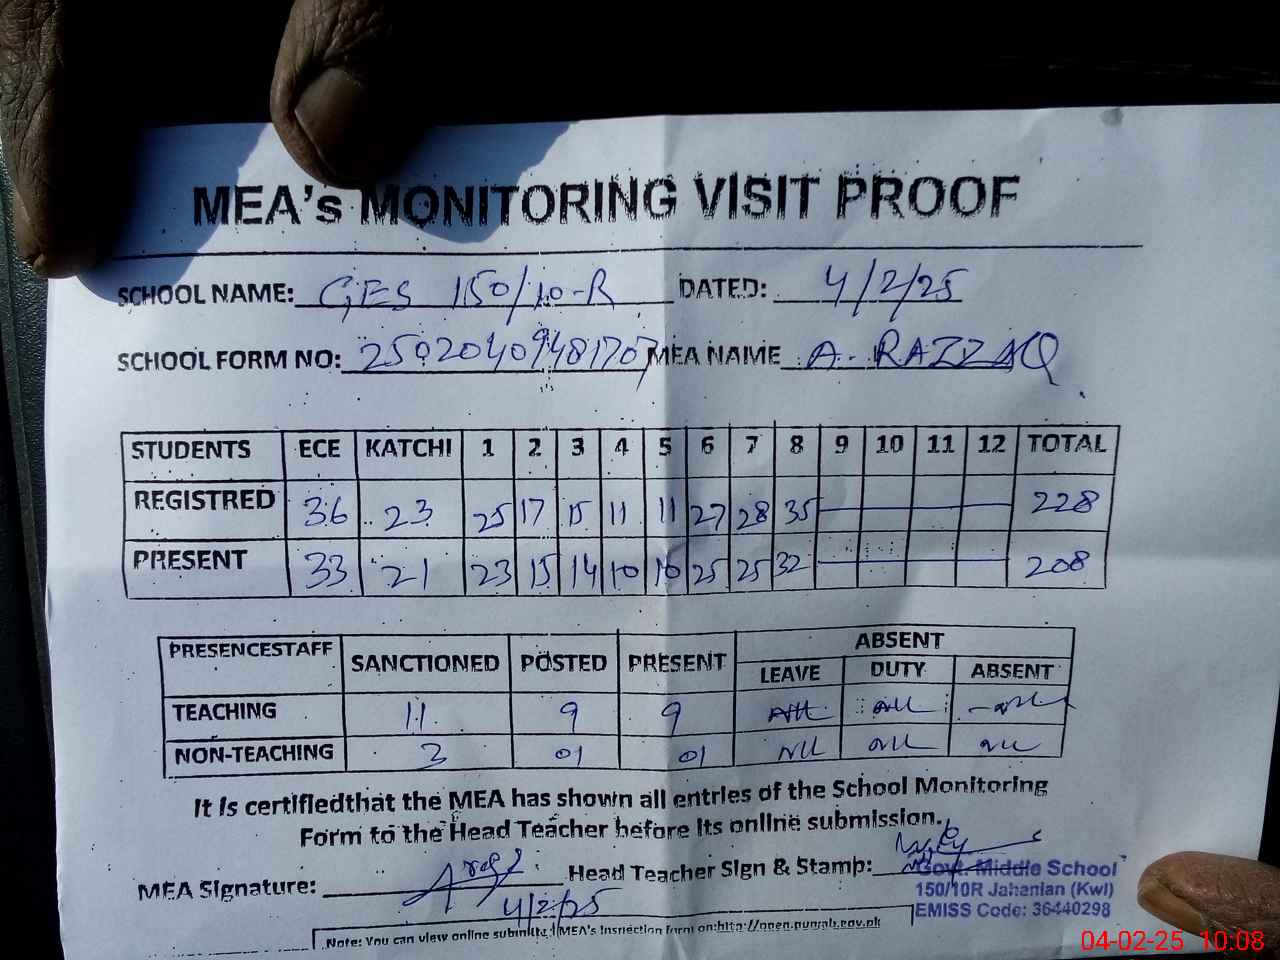 MEA's MONITORING VISIT PROOF
SCHOOL NAME: GES 150/10-R DATED: 4/2/25
SCHOOL FORM NO: MEA NAME A. RAZZAQ
STUDENTS ECE KATCHI 1 2 3 4 5 6 7 8 9 10 11 12 TOTAL
REGISTRED 36 23 25 17 15 11 11 27 28 35 228
PRESENT 33 21 23 15 14 10 10 25 25 32 208
PRESENCESTAFF SANCTIONED POSTED PRESENT ABSENT
LEAVE DUTY ABSENT
TEACHING 11 9 9 Nil Nil Nil
NON-TEACHING 3 01 01 Nil Nil Nil
It is certifiedthat the MEA has shown all entries of the School Monitoring
Form to the Head Teacher before its online submission.
MEA Signature: Head Teacher Sign & Stamp:
4/2/25
Govt. Middle School
150/10R Jahanian (Kwl)
EMISS Code: 36440298
Note: You can view online submitted MEA's Inspection form on:http://open.punjab.gov.pk
04-02-25 10:08